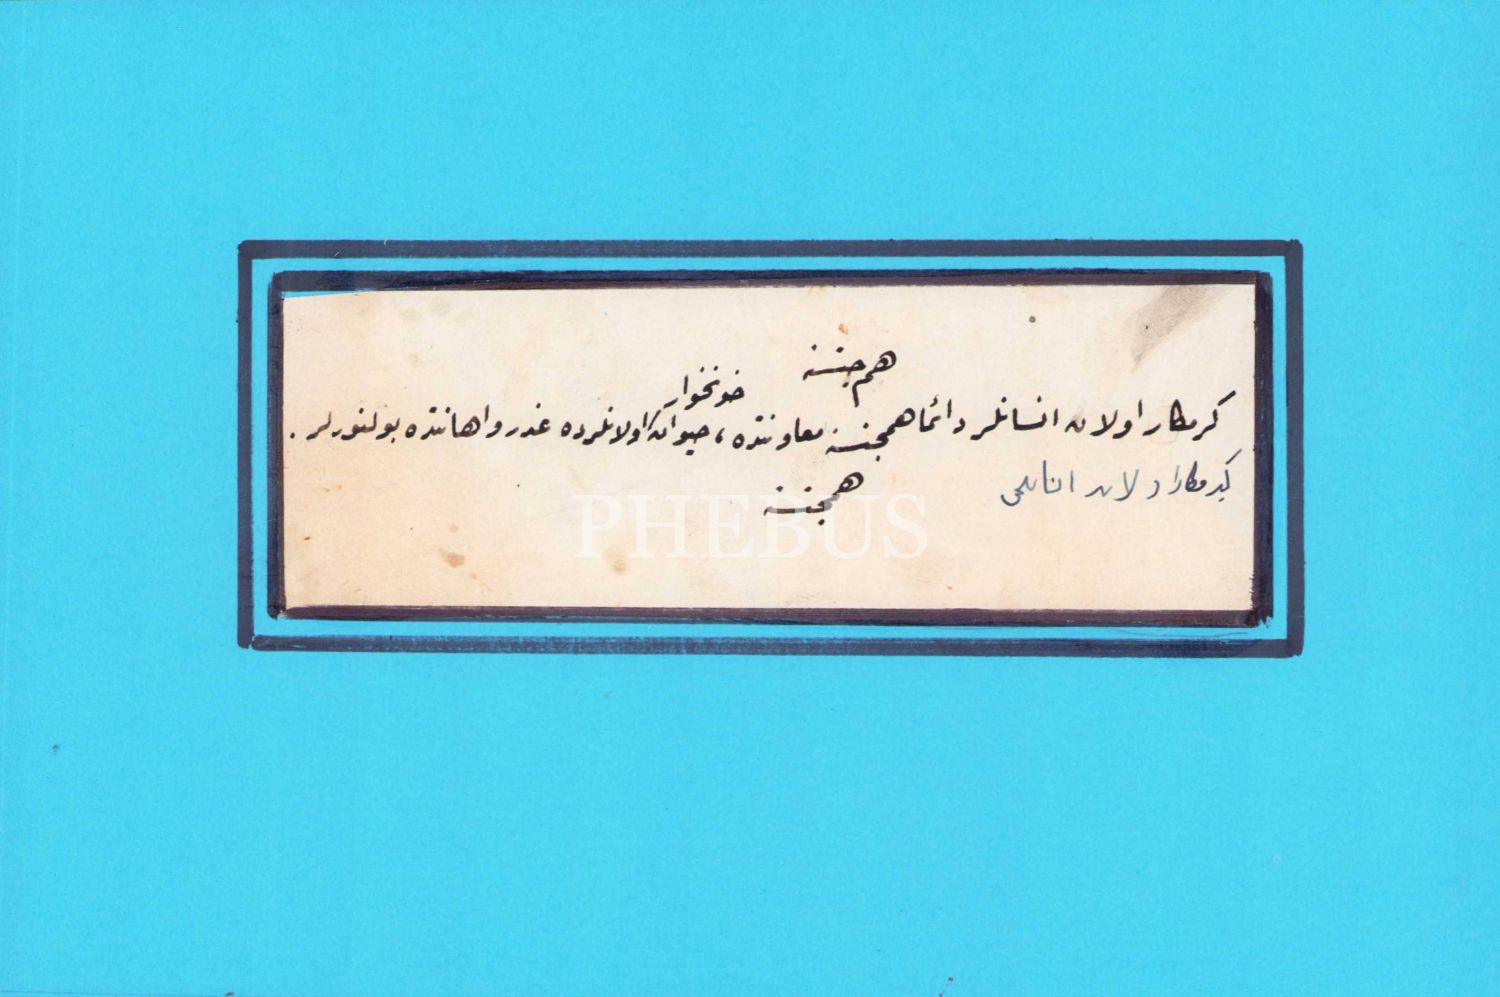 هم جنسنه
خونخوار
كرمكار اولان انسانلر دائما همجنسنه معاونتده ، حيوان اولانلرده غدر و اهانتده بولنورلر .
كرمكار اولان
همجنسنه
PHEBUS